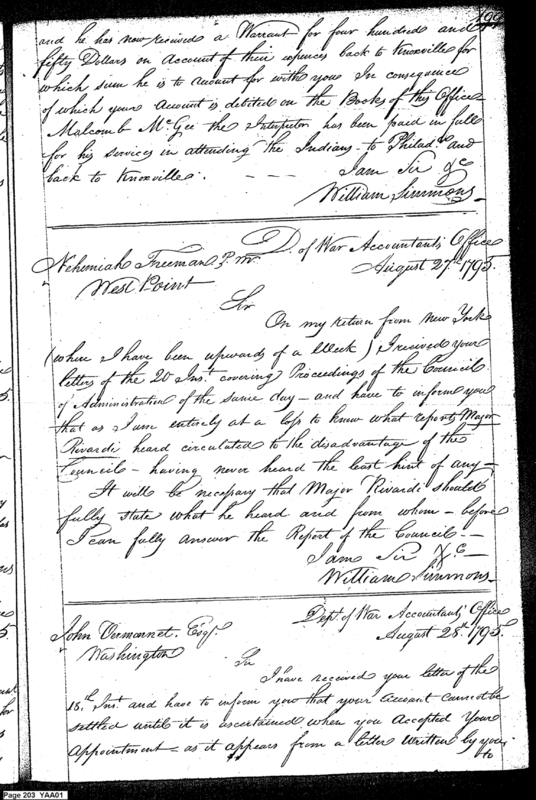 199
and he has now received a Warrant for four hundred and
fifty Dollars on Account of their expences back to Knoxville for
which sum he is to account for with you In consequence
of which your Account is debited on the Books of this Office
Malcomb McGee the Interpretor has been paid in full
for his services in attending the Indians to Philada. and
back to Knoxville. – – –
I am Sir &c
William Simmons
D. of War Accountants Office
Nehemiah Freeman P. Mr.
August 27th 1795.
West Point
Sir
On my return from New York
(where I have been upwards of a Week) I received your
letters of the 20 Inst. covering Proceedings of the Council
of Administration of the same day – and have to inform you
that as I am entirely at a loss to know what reports Major
Rivardi heard circulated to the disadvantage of the
Council – having never heard the least hint of any –
It will be necessary that Major Rivardi should
fully state what he heard and from whom – before
I can fully answer the Report of the Council. –
I am Sir &c –
William Simmons –
Dept. of War Accountants' Office
John Vermonnet. Esqr.
August 28th 1795.
Washington
Sir
I have received your letter of the
18th Inst. and have to inform you that your account cannot be
settled until it is ascertained when you Accepted Your
Appointment – as it appears from a letter written by you,
to
Page 203 YAA01